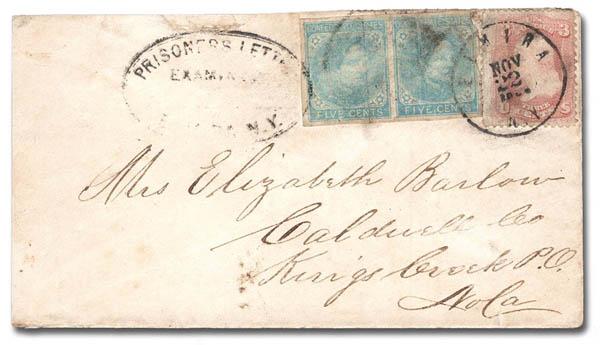 PRISONER'S LETTER
EXAMINED
N.Y.
FIVE CENTS FIVE CENTS
3
ELMIRA
NOV
22
N.Y.
Mrs Elizabeth Barlow
Caldwell Co
Kings Creek P.O.
No Ca